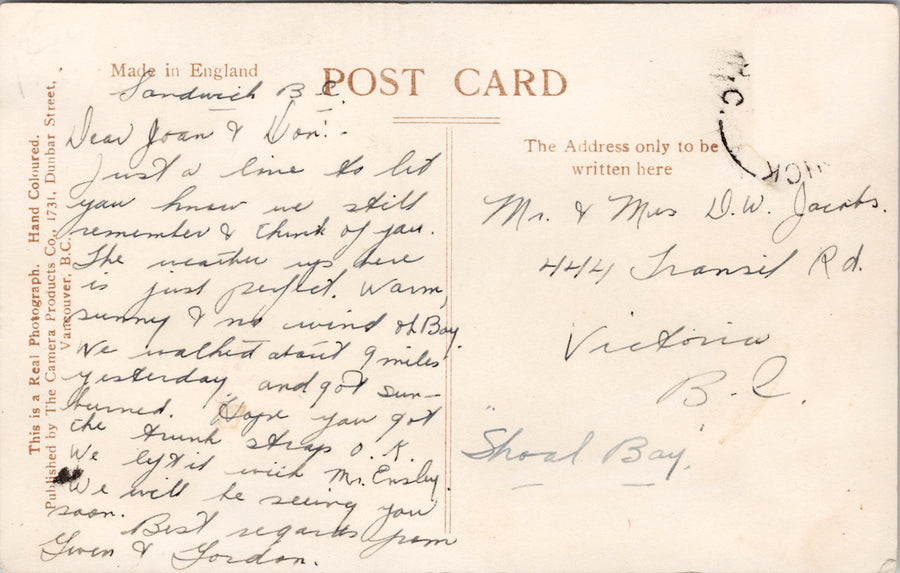 Made in England
POST CARD
Sandwich B C.
Dear Joan & Don:-
Just a line to let
you know we still
remember & think of you.
The weather up here
is just perfect. Warm,
sunny & no wind oh Boy.
We walked about 9 miles
yesterday and got sun-
burned. Hope you got
the trunk straps O.K.
We left it with Mr. Ensley.
We will be seeing you
soon.
Best regards from
Gwen & Gordon.
This is a Real Photograph. Hand Coloured.
Published by The Camera Products Co., 1731, Dunbar Street,
Vancouver, B.C.
The Address only to be
written here
Mr. & Mrs D.W. Jacobs.
444 Transit Rd.
Victoria
B.C.
"Shoal Bay"
.C.
ICK